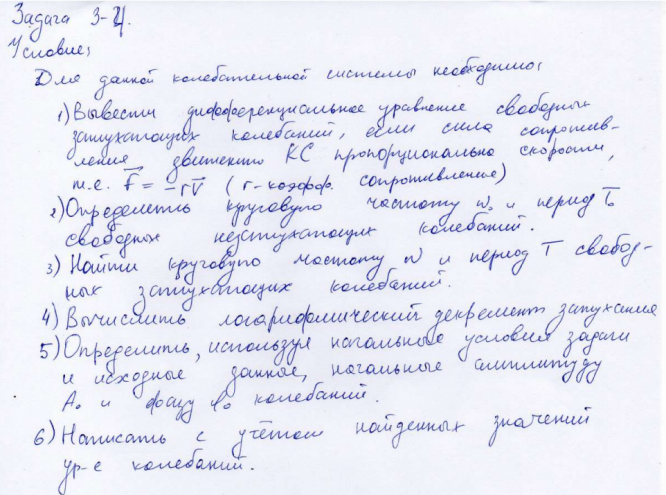 Задача 3-4.
Условие:
Для данной колебательной системы необходимо:
1) Вывести дифференциальное уравнение свободных
затухающих колебаний, если сила сопротив-
ления движению КС пропорциональна скорости,
т.е. f = -rv (r-коэфф. сопротивления)
2) Определить круговую частоту ω₀ и период T₀
свободных незатухающих колебаний.
3) Найти круговую частоту ω и период T свобод-
ных затухающих колебаний.
4) Вычислить логарифмический декремент затухания
5) Определить, используя начальные условия задачи
и исходные данные, начальные амплитуду
A₀ и фазу φ₀ колебаний.
6) Написать с учётом найденных значений
ур-е колебаний.